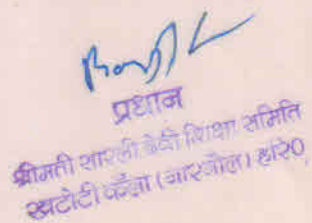 प्रधान
श्रीमती सारली देवी शिक्षा समिति
खटोटी कलाँ (नारनौल) हरि०